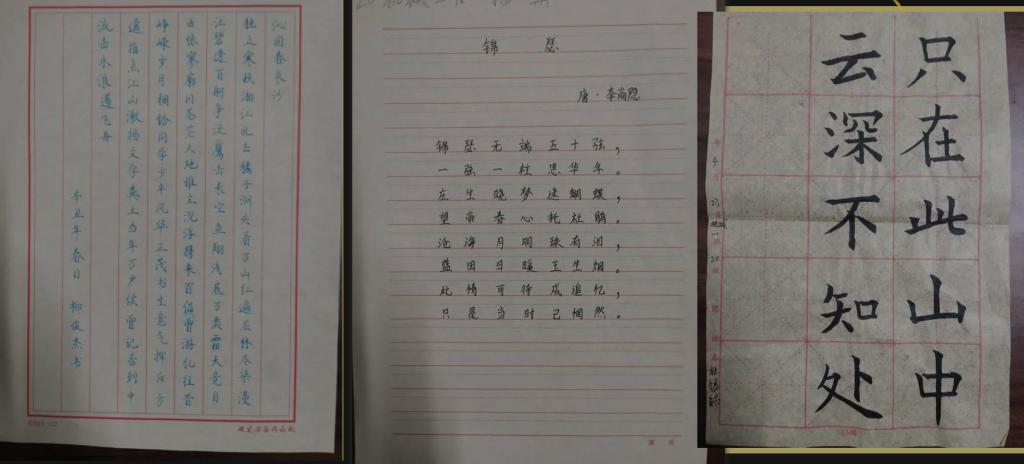 沁园春长沙
独立寒秋湘江北去橘子洲头看万山红遍层林尽染漫
江碧透百舸争流鹰击长空鱼翔浅底万类霜天竞自
由怅寥廓问苍茫大地谁主沉浮携来百侣曾游忆往昔
峥嵘岁月稠恰同学少年风华正茂书生意气挥斥方
遒指点江山激扬文字粪土当年万户侯曾记否到中
流击水浪遏飞舟
辛丑年春日 柳俊杰书
硬笔书法作品纸
锦 瑟
唐·李商隐
锦瑟无端五十弦，
一弦一柱思华年。
庄生晓梦迷蝴蝶，
望帝春心托杜鹃。
沧海月明珠有泪，
蓝田日暖玉生烟。
此情可待成追忆，
只是当时已惘然。
第 页
只在此山中
云深不知处